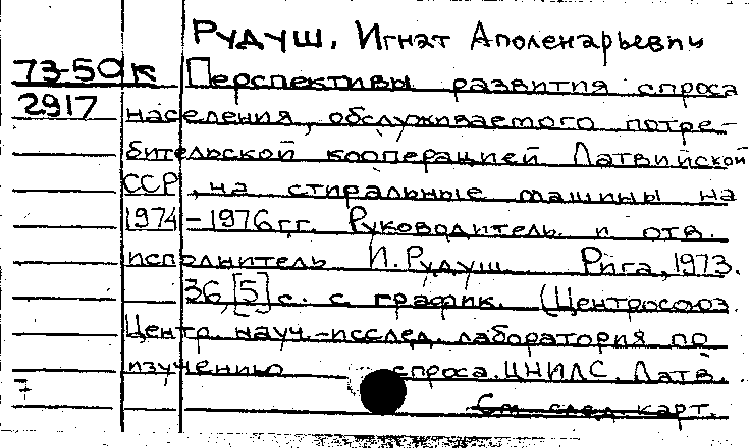 Рудуш, Игнат Аполенарьевич
73-50к Перспективы развития спроса
2917 населения, обслуживаемого потре-
бительской кооперацией Латвийской
ССР, на стиральные машины на
1974-1976гг. Руководитель и отв.
исполнитель И. Рудуш. Рига, 1973.
36, [5] с. с график. (Центросоюз.
Центр. науч.-исслед. лаборатория по
изучению спроса. ЦНИЛС. Латв.
7
См. след. карт.